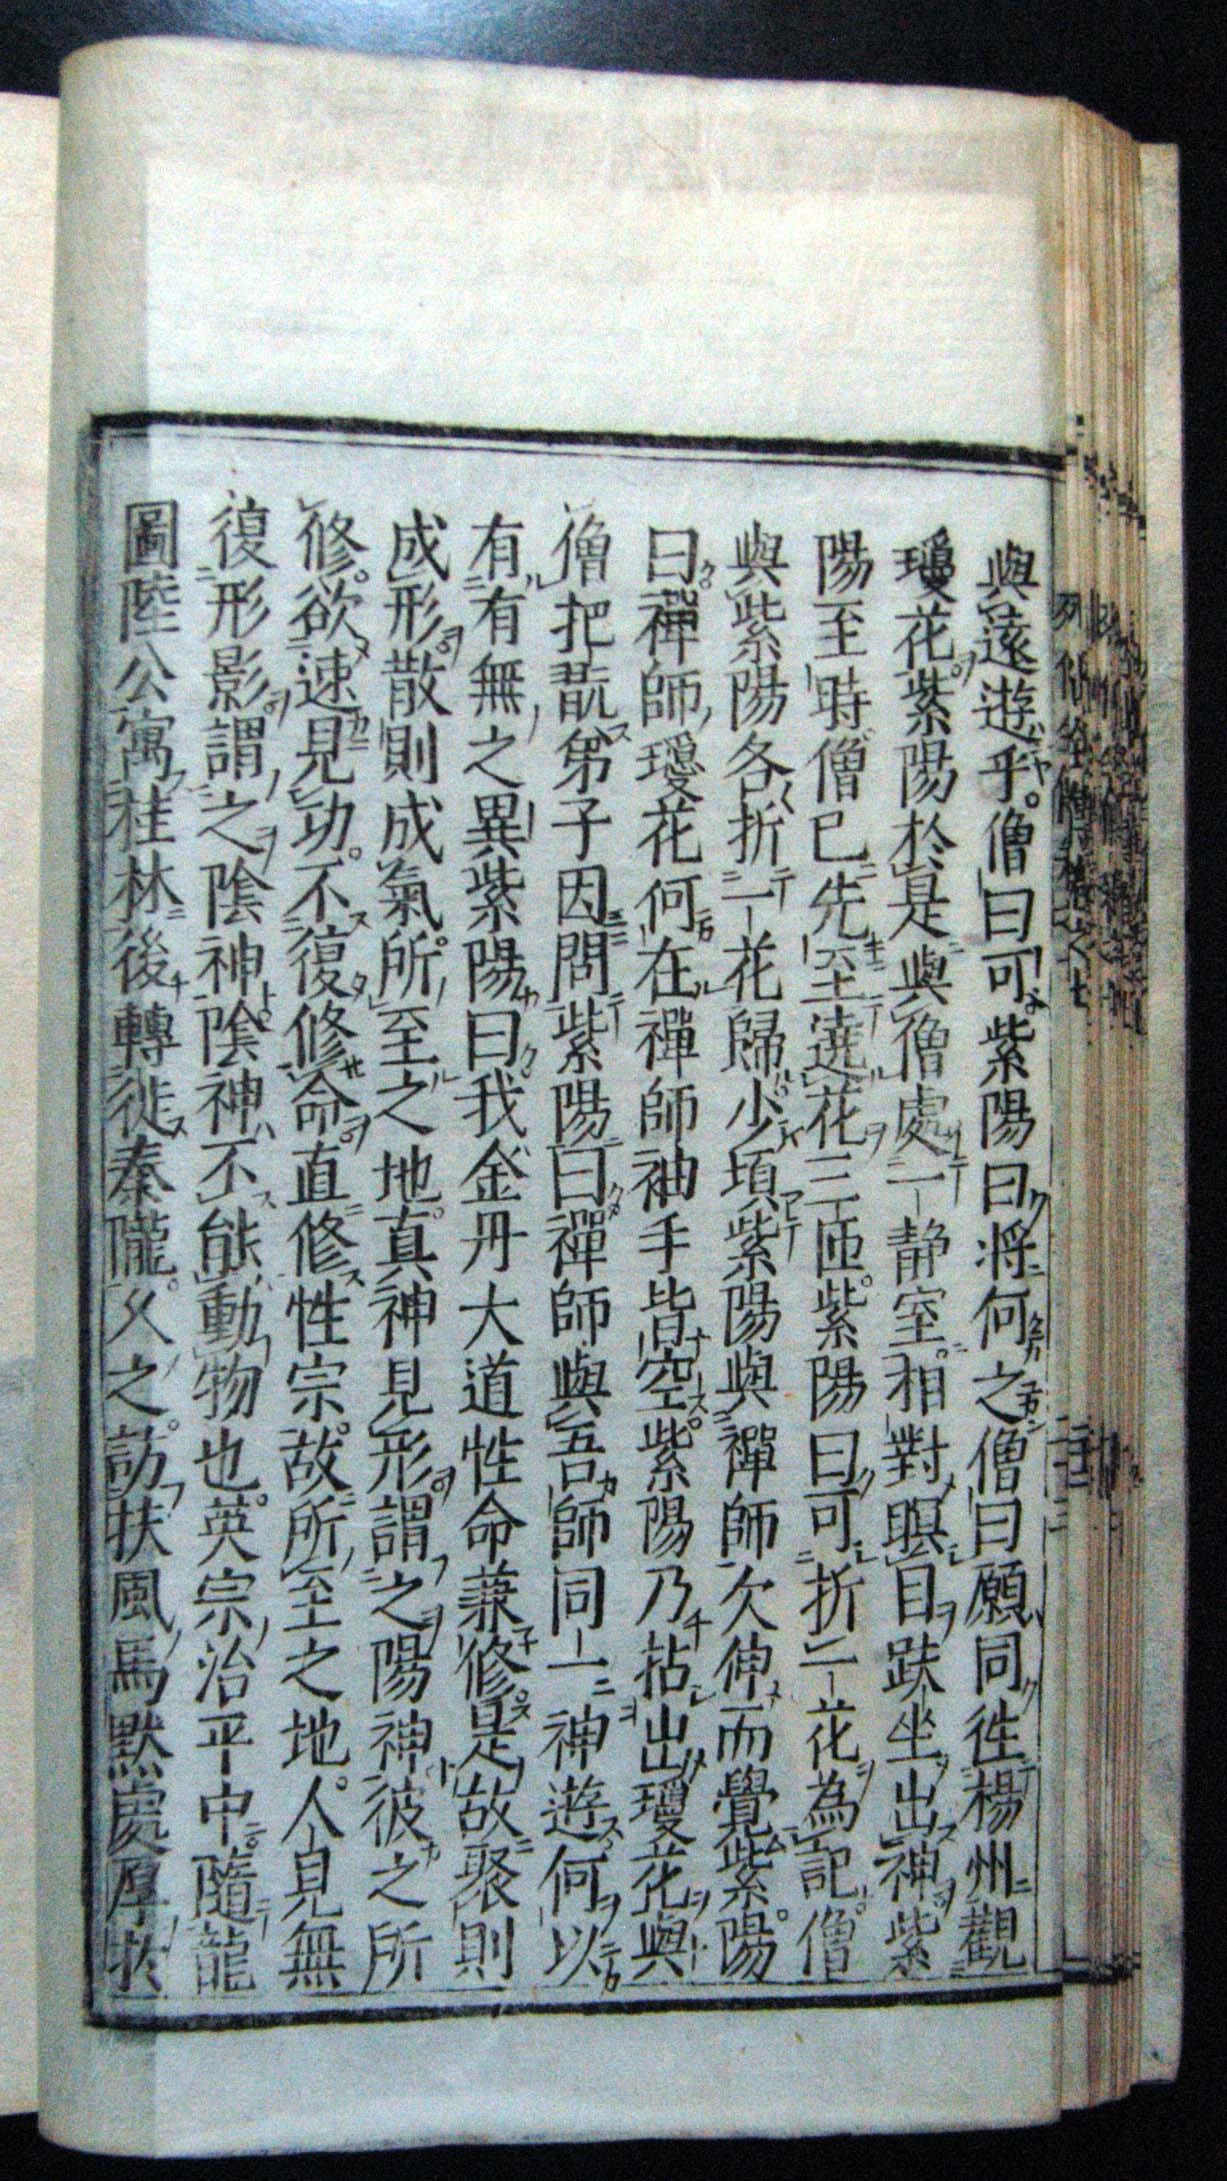 與遠遊乎。僧曰可紫陽曰將何之僧曰願同徃楊州觀
瓊花紫陽於是與僧處一静室。相對瞑目趺坐出神紫
陽至時僧已先至遶花三匝。紫陽曰可折一花為記。僧
與紫陽各折一花歸少頃紫陽與禪師欠伸而覺紫陽
曰禪師瓊花何在禪師袖手皆空紫陽乃拈出瓊花與
僧把翫弟子因問紫陽曰禪師與吾師同一神遊何以
有有無之異紫陽曰我金丹大道性命兼修是故聚則
成形散則成氣所至之地。真神見形謂之陽神彼之所
修。欲速見功。不復修命直修性宗。故所至之地。人見無
復形影謂之陰神陰神不能動物也。英宗治平中隨龍
圖陸公寓桂林後轉徙秦隴。父之。訪扶風馬默處厚於